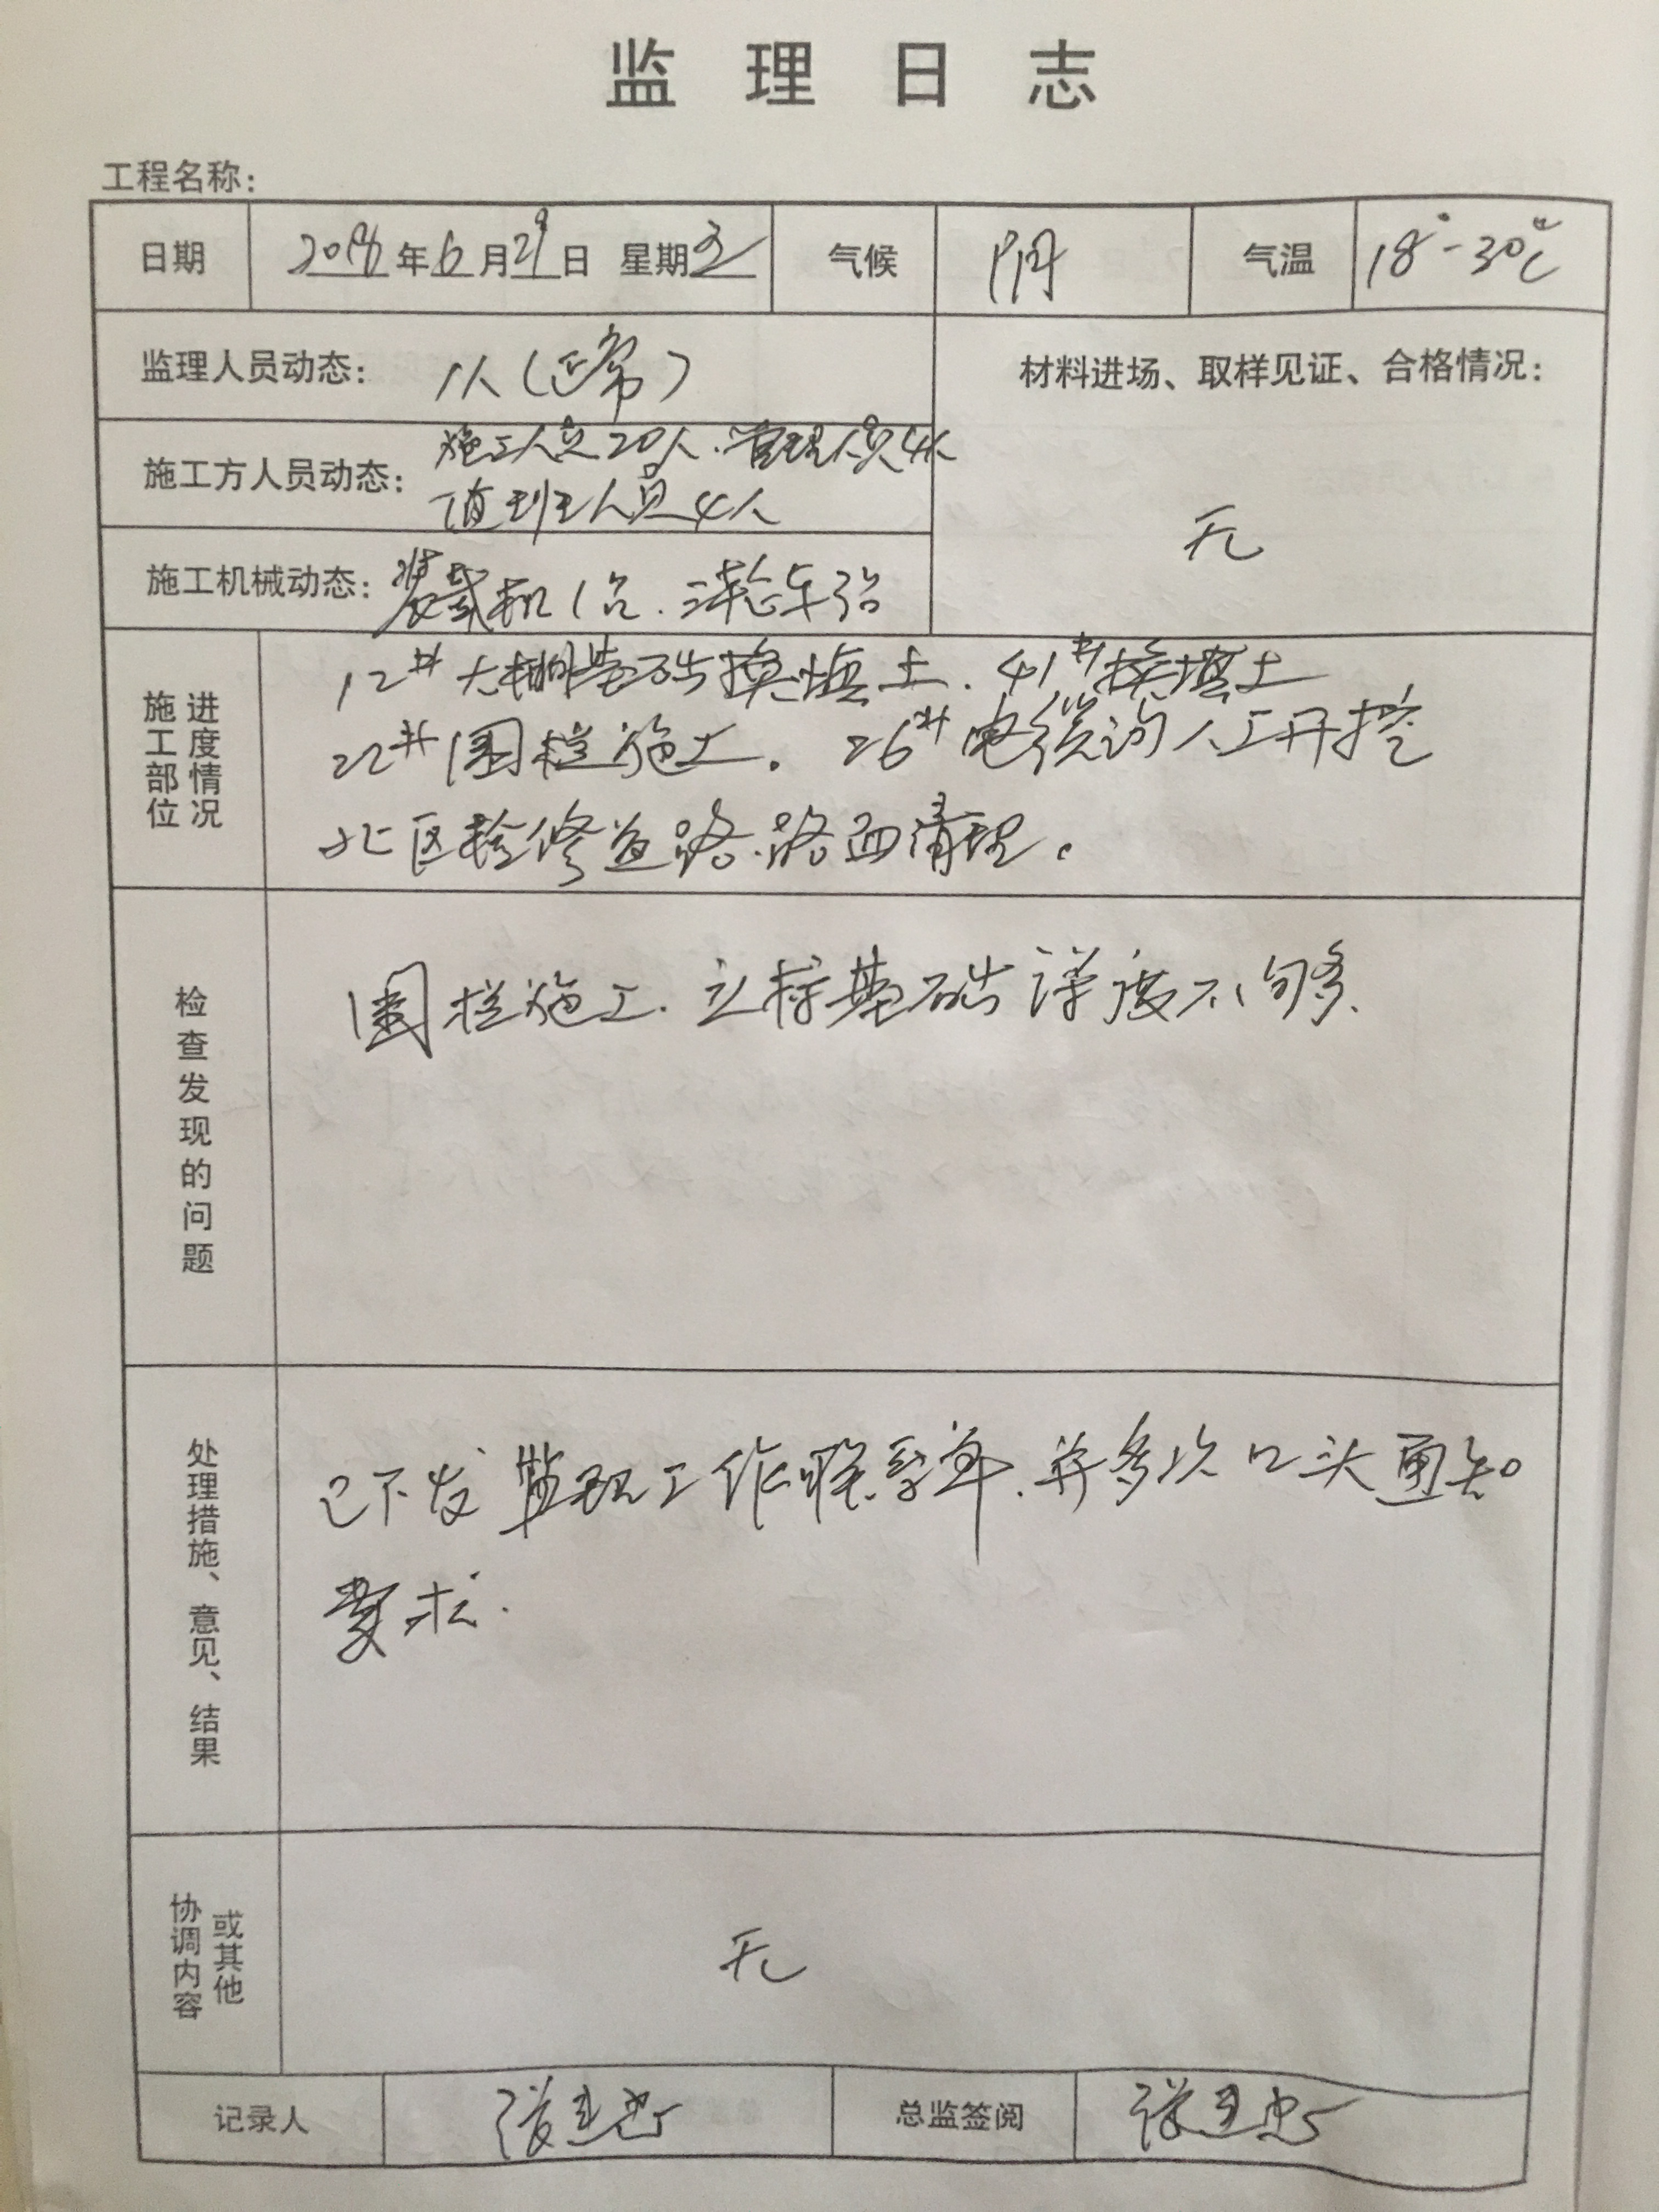 监理日志
工程名称：
日期 年6月29日 星期五 气候 阴 气温 18°-30℃
监理人员动态： 1人（正常）
材料进场、取样见证、合格情况：
无
施工方人员动态： 施工人员20人.管理人员4人
值班人员4人
施工机械动态： 装载机1台. 车3台
施工部位 进度情况
12# 大棚基础换填土. 41#换填土
22#围栏施工. 26#电缆沟人工开挖
北区检修道路.路面清理。
检查发现的问题
围栏施工. 立柱基础 度不够.
处理措施、意见、结果
已下发监理工作联系单.并多次口头通知
要求.
协调内容 或其他
无
记录人 张 忠 总监签阅 张 忠